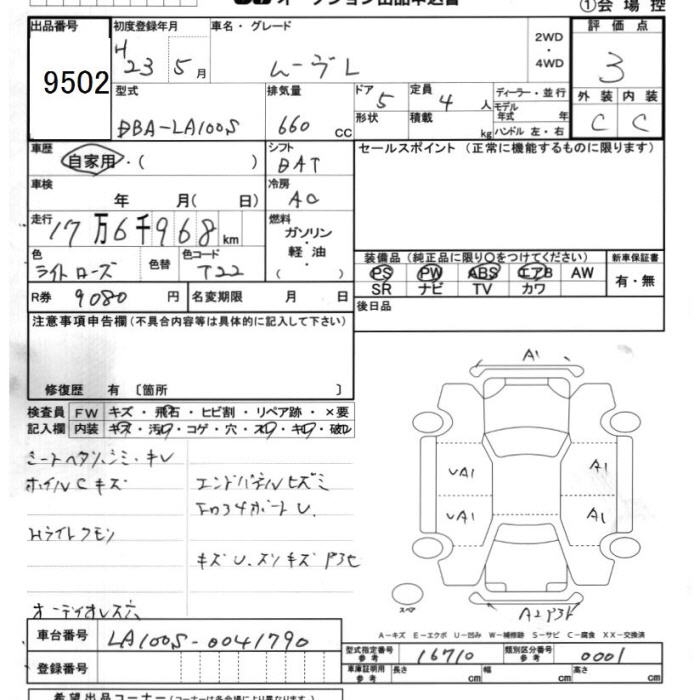 オークション出品申込書
①会場控
出品番号
9502
初度登録年月
H 23 5月
車名・グレード
ムーヴL
2WD・4WD
評価点
3
型式
DBA-LA100S
排気量
660 CC
ドア
5
形状
定員
4 人
積載
kg
ディーラー・並行
モデル年式 年
ハンドル 左・右
外装 内装
C C
車歴
自家用・( )
シフト
BAT
セールスポイント (正常に機能するものに限ります)
車検
年 月( 日)
冷房
AC
走行
17万6千968km
燃料
ガソリン・軽油・( )
色
ライトローズ
色替
色コード
T22
装備品 (純正品に限り〇をつけてください)
PS PW ABS エアB AW
SR ナビ TV カワ
新車保証書
有・無
R券 9080 円
名変期限 月 日
後日品
注意事項申告欄(不具合内容等は具体的に記入して下さい)
修復歴 有 〔箇所 〕
検査員記入欄
FW キズ・飛石・ヒビ割・リペア跡・×要
内装 キズ・汚れ・コゲ・穴・スレ・キレ・破レ
シートヘタリ,シミ・キレ
ホイルCキズ
Hライトクモリ
オーディオレス穴
エンドパネルヒズミ
キズU.スリキズ
A1
UA1
A1
UA1
A1
スペア
A-キズ E-エクボ U-凹み W-補修跡 S-サビ C-腐食 XX-交換済
車台番号
LA100S-0041790
登録番号
型式指定番号 参考
16710
類別区分番号 参考
0001
車庫証明用 参考
長さ 幅 高さ
希望出品コーナー(コーナーは各会場により異なります。)